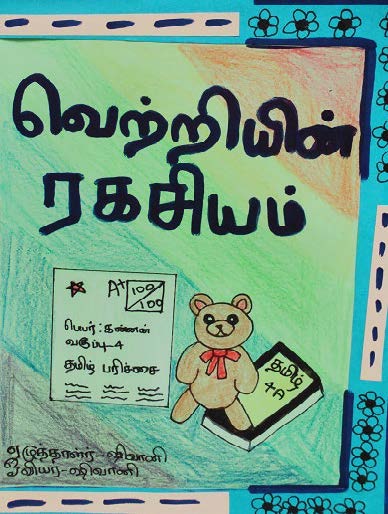 வெற்றியின்
ரகசியம்
A+ 100/100
பெயர்: கண்ணன்
வகுப்பு-4
தமிழ் பரிக்சை
தமிழ்
4A
எழுத்தாளர்-ஷிவானி
ஓவியர்-ஷிவானி